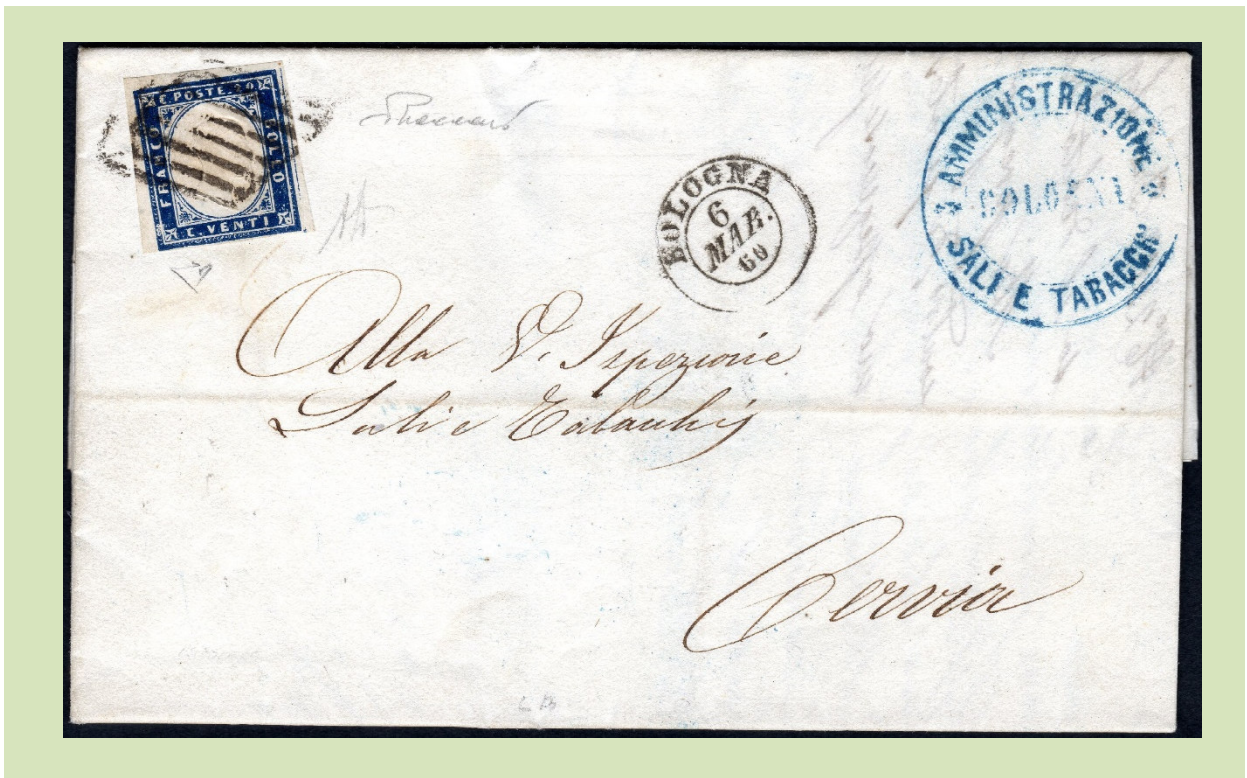 C. POSTE. 20
FRANCO
BOLLO
C. VENTI
BOLOGNA
6
MAR.
60
AMMINISTRAZIONE
BOLOGNA
SALI E TABACCHI
Alla V. Ispezione
Sali e Tabacchi
Cervia